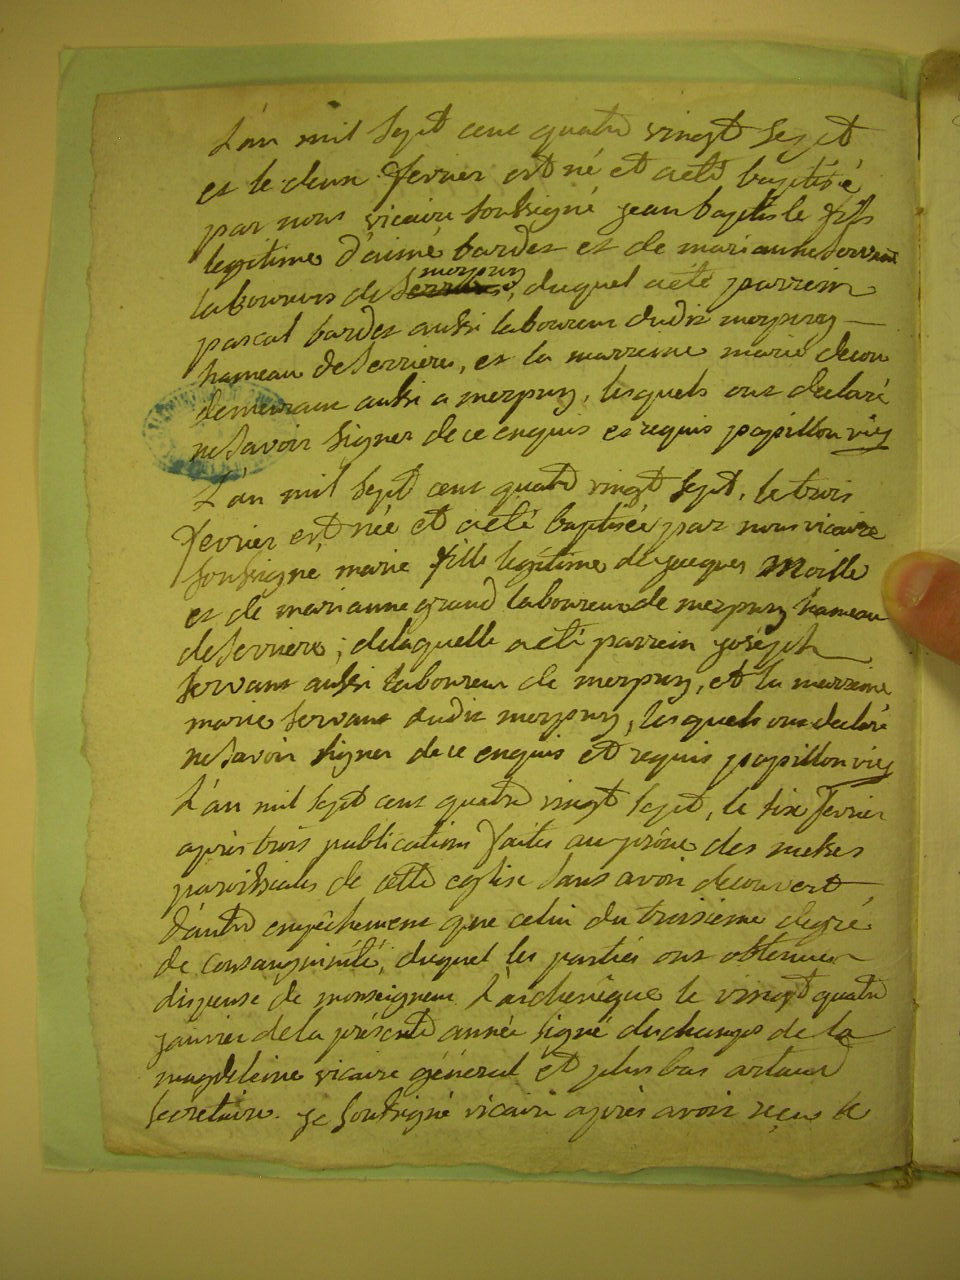 L'an mil sept cent quatre vingt sept
et le deux fevrier est né et aeté baptisé
par nous vicaire soussigné jean baptiste fils
legitime d'aimé bardet et de marianne servant
laboureurs de merpuy, duquel aeté parrein
pascal bardet aussi laboureur dudit merpuy
hameau de serrieres, et la marreine marie
demeurant aussi a merpuy, lesquels ont declaré
ne savoir signer de ce enquis et requis papillon vic
L'an mil sept cent quatre vingt sept, le trois
fevrier est née et aeté baptisée par nous vicaire
soussigné marie fille legitime de jacques Moille
et de marianne grand laboureurs de merpuy hameau
de serriere; delaquelle aeté parrein joseph
servant aussi laboureur de merpuy, et la marreine
marie servant dudit merpuy, lesquels ont declaré
ne savoir signer de ce enquis et requis papillon vic
L'an mil sept cent quatre vingt sept, le six fevrier
apres trois publications faites au prône des messes
paroissiales de cette eglise sans avoir decouvert
d'autre empêchement que celui du troisieme degré
de consanguinité, duquel les parties ont obtenu
dispense de monseigneur L'archevêque le vingt quatre
janvier de la présente année signé duchamps de la
magdeleine vicaire général et plus bas artaud
secretaire. je soussigné vicaire apres avoir reçu le